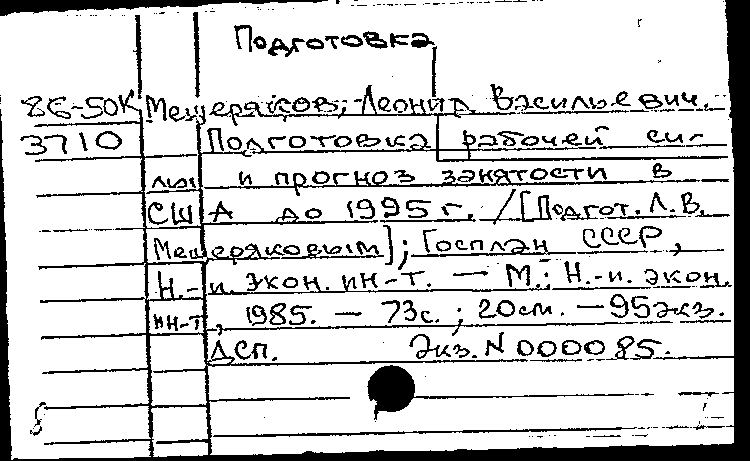 Подготовка
86-50К Мещеряков, Леонид Васильевич.
3710 Подготовка рабочей си-
лы и прогноз занятости в
США до 1995 г. / [Подгот. Л. В.
Мещеряковым]; Госплан СССР,
Н.-и. экон. ин-т. — М.: Н.-и. экон.
ин-т, 1985. — 73с.; 20см. — 95экз.
ДСП. Экз. N 000085.
8